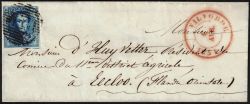 VILVORDE
Monsieur
Monsieur D'Huyvetter
Comice du 11me District agricole
à Eecloo. (Flandre Orientale)